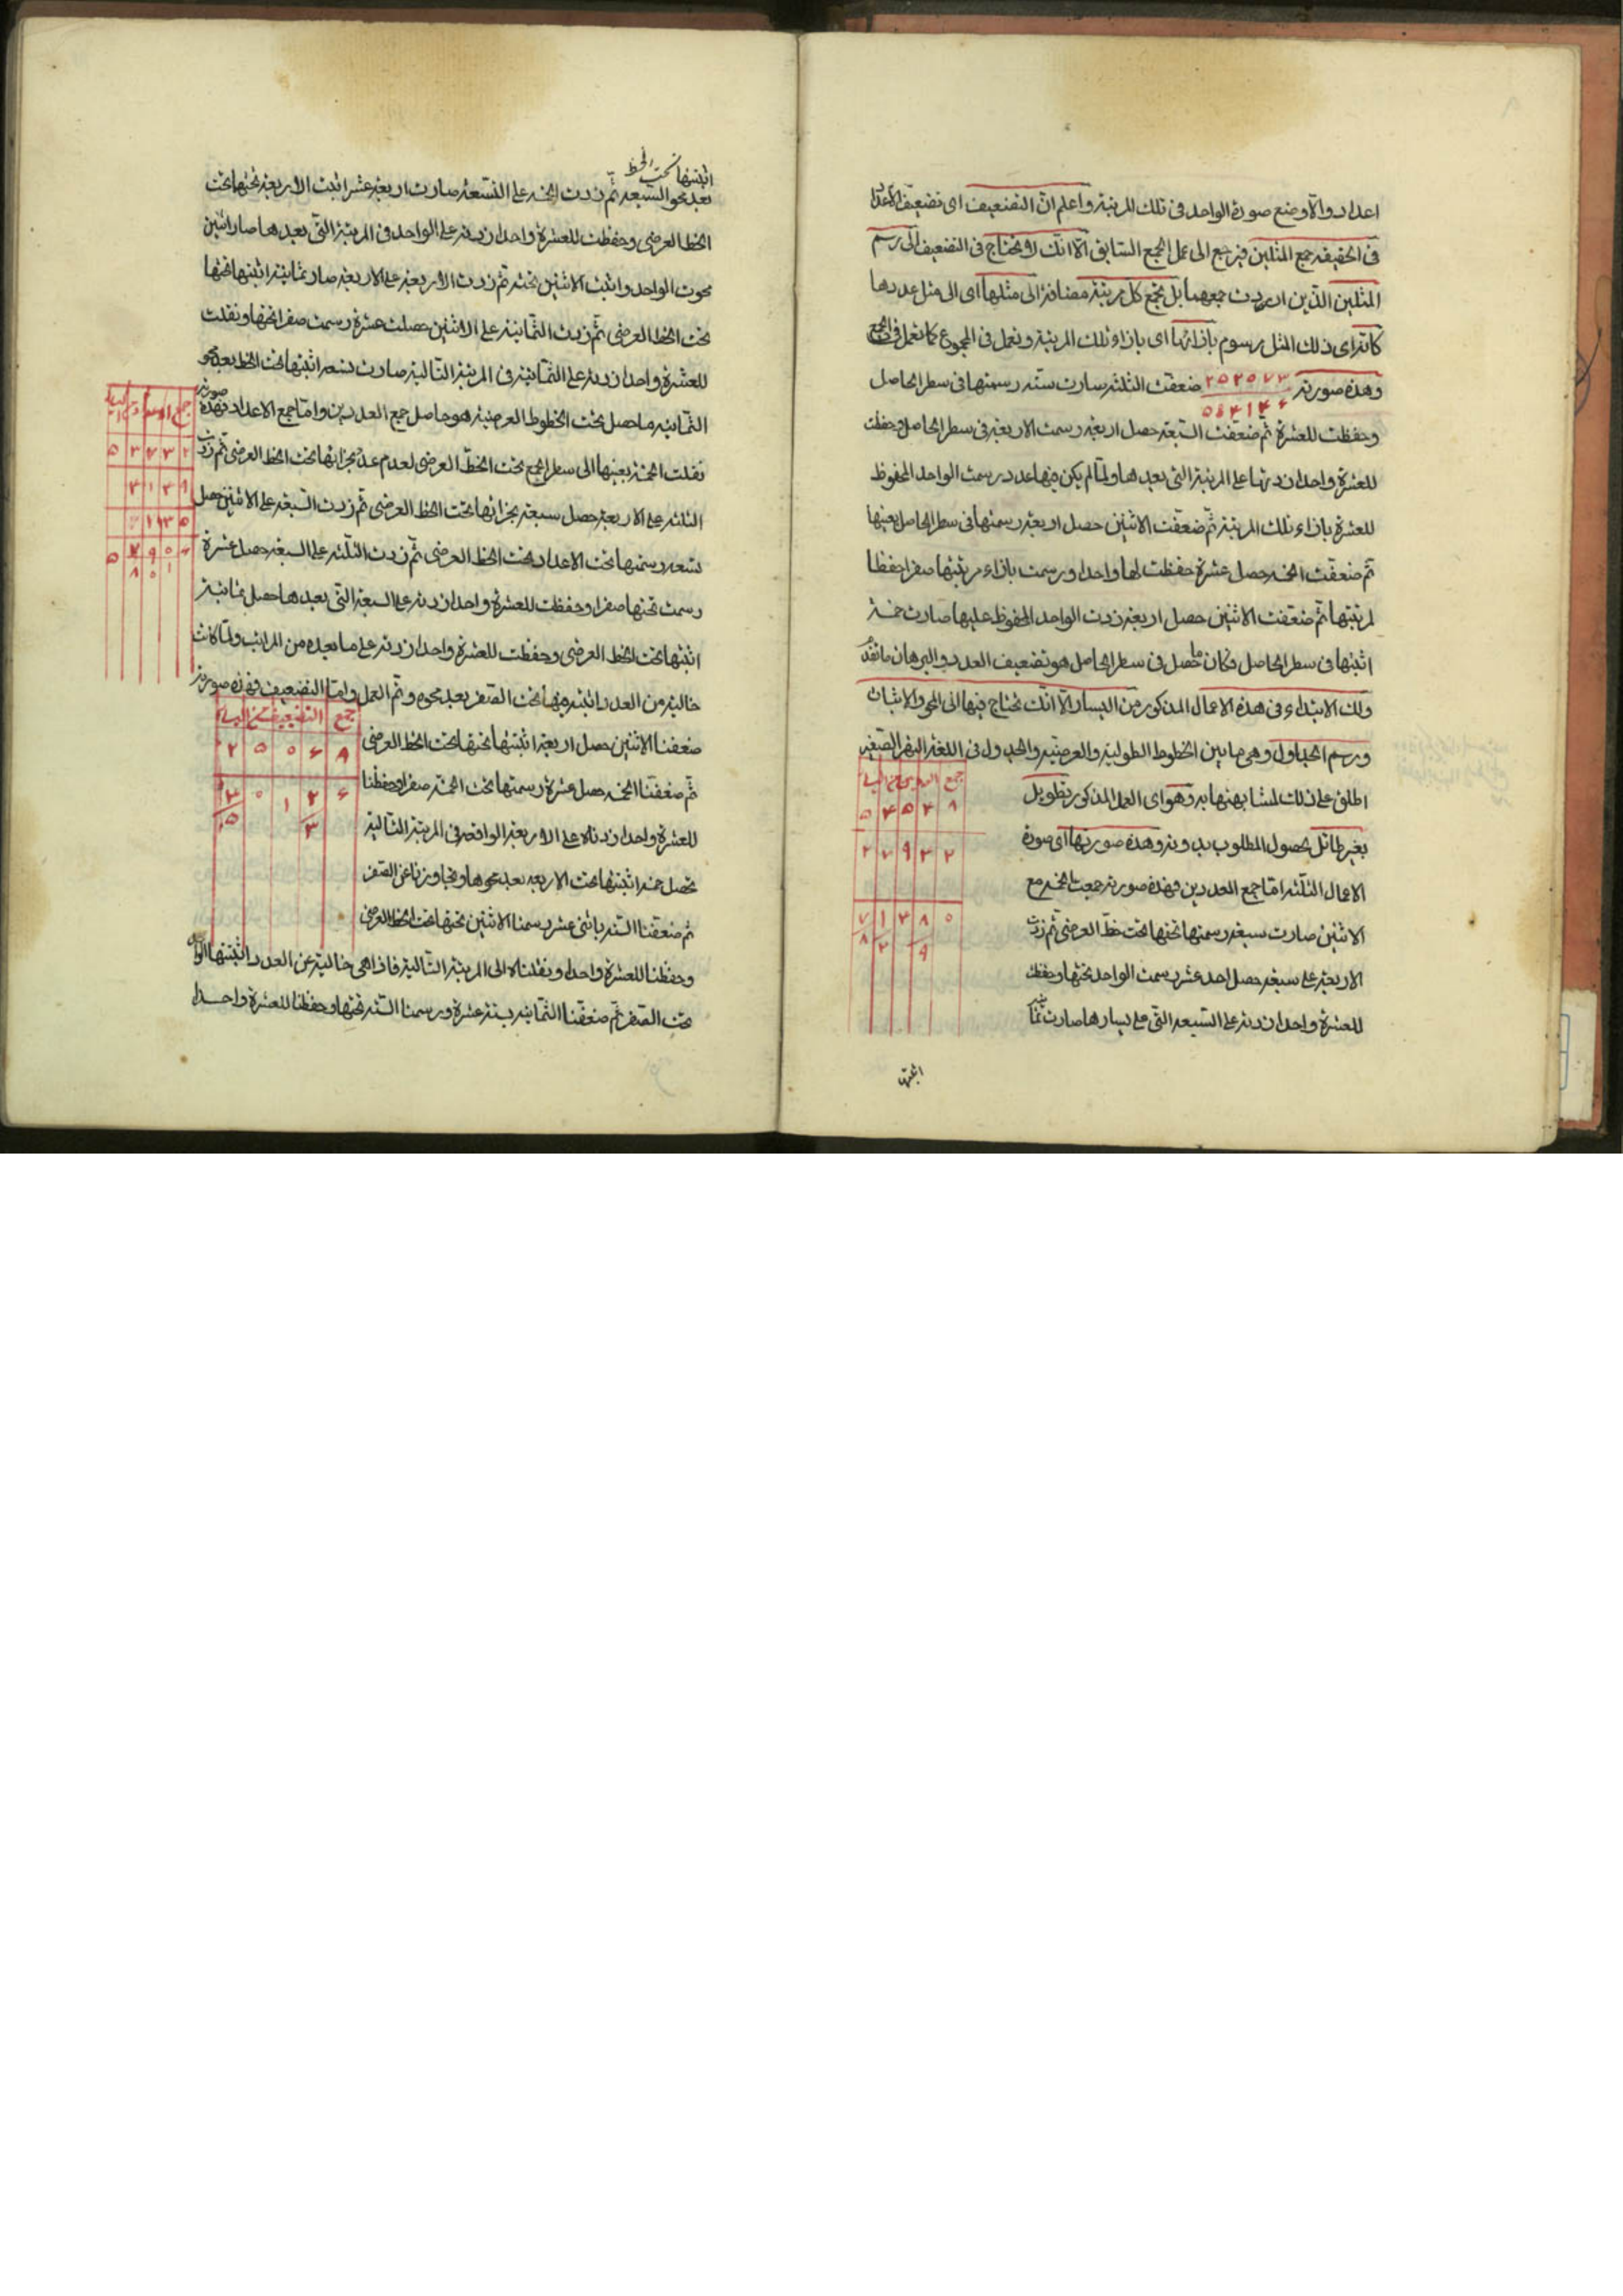 اعداد والا وضع صورة الواحد فى تلك المرتبة واعلم ان التضعيف اى تضعيف الاعداد
فى الحقيقة جمع المثلين فيرجع الى عمل الجمع السابق الا انك لا تحتاج فى التضعيف الى رسم
المثلين الذين اردت جمعهما بل تجمع كل مرتبة مضافة الى مثلها اى الى مثل عددها
كانه اى ذلك المثل مرسوم بازائها اى بازاء تلك المرتبة وتعمل فى المجموع كما تعمل فى الجمع
وهذه صورته ٢٥٢٠٧٣ ضعفت الثلثة صارت ستة رسمتها فى سطر الحاصل
٥٠٤١٤٦
ثم ضعفت السبعة حصل اربعة رسمت الاربعة فى سطر الحاصل وحفظت
للعشرة واحدا زدتها على المرتبة التى بعدها ولما لم يكن فيها عدد رسمت الواحد المحفوظ
للعشرة بازاء تلك المرتبة ثم ضعفت الاثنين حصل اربعة رسمتها فى سطر الحاصل بعينها
ثم ضعفت الخمسة حصل عشرة حفظت لها واحدا ورسمت بازاء مرتبتها صفرا حفظا
لمرتبتها ثم ضعفت الاثنين حصل اربعة زدت الواحد المحفوظ عليها صارت خمسة
اثبتها فى سطر الحاصل فكان ما حصل فى سطر الحاصل هو تضعيف العدد والبرهان ما تقدم
ولك الابتداء فى هذه الاعمال المذكورة من اليسار الا انك تحتاج فيها الى المحو والاثبات
ورسم الجداول وهى ما بين الخطوط الطولية والعرضية والجدول فى اللغة النهر الصغير
اطلق على ذلك لمشابهتها به وهو اى العمل المذكور تطويل
بغير طائل لحصول المطلوب بدونه وهذه صورتها اى صورة
الاعمال الثلثة اما جمع العددين فهذه صورته جمعت الخمسة مع
الاثنين صارت سبعة رسمتها تحتها تحت خط العرضى ثم زدت
الاربعة على سبعة حصل احد عشر رسمت الواحد تحتها وحفظت
للعشرة واحدا زدته على السبعة التى على يسارها صارت ثمانية
٥ ٤ ٥ ٤ ٨
٢ ٧ ٩ ٣ ٢
٧ ١ ٤ ٨ ٠
٨ ٢ ٩
اثبتها
اثبتها تحت الخط
بعد محو السبعة ثم زدت الخمسة على التسعة صارت اربعة عشر اثبت الاربعة تحتها تحت
الخط العرضى وحفظت للعشرة واحدا زدته على الواحد فى المرتبة التى بعدها صار اثنين
محوت الواحد واثبت الاثنين تحته ثم زدت الاربعة على الاربعة صار ثمانية اثبتها تحتها
تحت الخط العرضى ثم زدت الثمانية على الاثنين حصلت عشرة رسمت صفرا تحتها ونقلت
للعشرة واحدا زدته على الثمانية فى المرتبة التالية صارت تسعة اثبتها تحت الخط بعد محو
الثمانية ما حصل تحت الخطوط العرضية هو حاصل جمع العددين واما جمع الاعداد فهذه صورته
نقلت الخمسة بعينها الى سطر الجمع تحت الخط العرضى لعدم عدد بحذائها تحت الخط العرضى ثم زدت
الثلثة على الاربعة حصل سبعة بحذائها تحت الخط العرضى ثم زدت السبعة على الاثنين حصل
تسعة رسمتها تحت الاعداد تحت الخط العرضى ثم زدت الثلثة على السبعة حصل عشرة
رسمت تحتها صفرا وحفظت للعشرة واحدا زدته على السبعة التى بعدها حصل ثمانية
اثبتها تحت الخط العرضى وحفظت للعشرة واحدا زدته على ما بعده من المراتب ولما كانت
خالية من العدد اثبته فيها تحت الصفر بعد محوه وتم العمل واما التضعيف فهذه صورته
ضعفنا الاثنين حصل اربعة اثبتها تحتها تحت الخط العرضى
ثم ضعفنا الخمسة حصل عشرة رسمتها تحت الخمسة صفرا وحفظنا
للعشرة واحدا زدناه على الاربعة الواقعة فى المرتبة التالية
تحصل خمسة اثبتها تحت الاربعة بعد محوها وتجاوزنا عن الصفر
ثم ضعفنا الستة باثنى عشر رسمنا الاثنين تحتها تحت الخط العرضى
وحفظنا للعشرة واحدا ونقلناه الى المرتبة التالية فاذا هى خالية عن العدد اثبتها
تحت الصفر ثم ضعفنا الثمانية بستة عشرة ورسمنا الستة تحتها وحفظنا للعشرة واحدا
جمع التضعيف من اليسار
٢ ٥ ٠ ٦ ٨